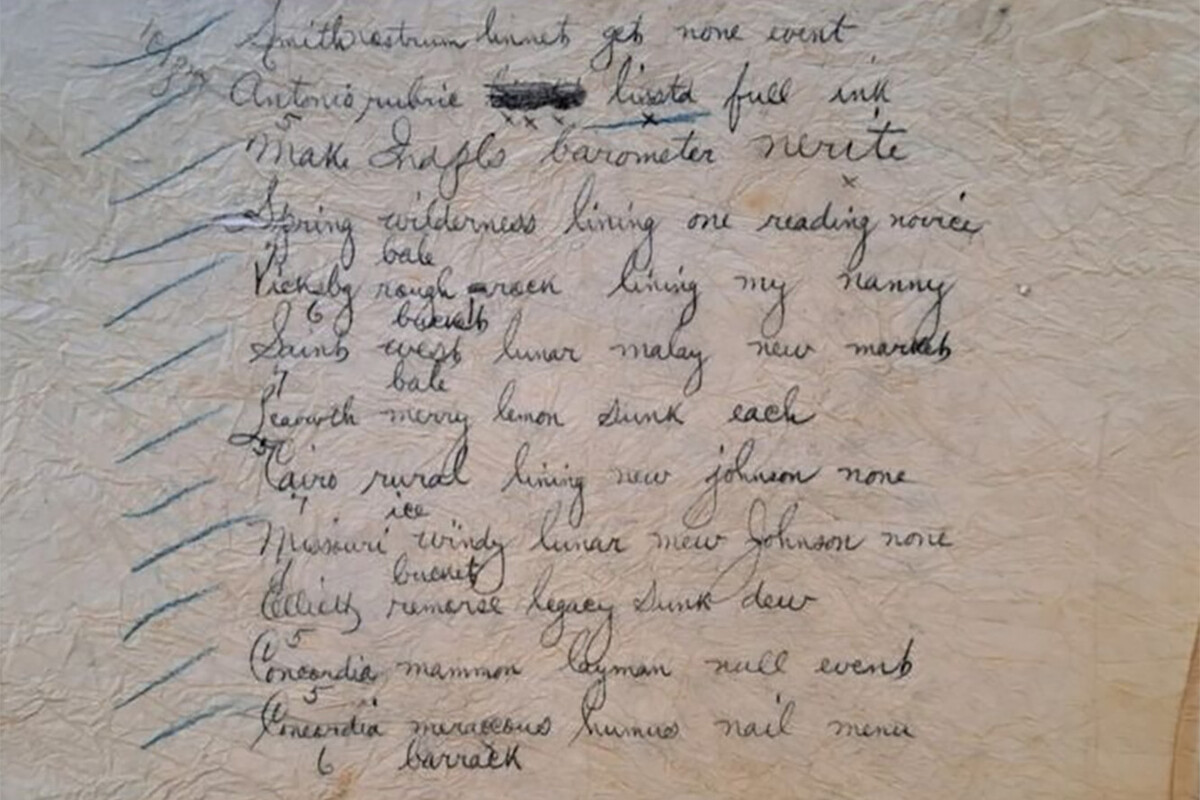 Smith nostrum linnet get none event
Antonio rubric lissta full ink
Make Indpls barometer nerite
Spring wilderness lining one reading novice
bale
Vicksbg rough rack lining my nanny
6 bucket
Saint west lunar malay new market
7 bale
Leavwth merry lemon sunk each
Cairo rural lining new johnson none
7 ice
Missouri windy lunar mew Johnson none
bucket
Elliott remorse legacy sunk dew
5
Concordia mammon layman null event
5
Concordia meraceous humus nail menu
6 barrack